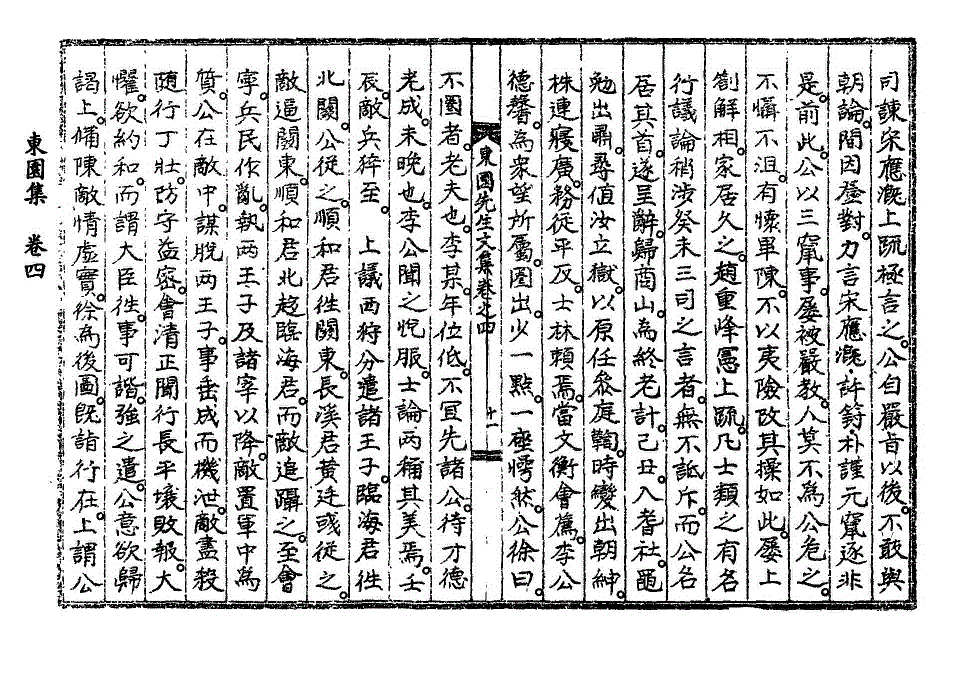 司諫宋應漑上疏極言之。公自嚴旨以後。不敢與
朝論。間因登對。力言宋應漑,許篈朴謹元竄逐非
是。前此。公以三竄事。屢被嚴敎。人莫不爲公危之。
不懾不沮。有懷畢陳。不以夷險改其操如此。屢上
箚解相。家居久之。趙重峰憲上疏。凡士類之有名
行議論稍涉癸未三司之言者。無不詆斥。而公名
居其首。遂呈辭歸商山。爲終老計。己丑。入耆社。黽
勉出肅。尋値汝立獄。以原任參庭鞫。時變出朝紳
株連寢廣。務從平反。士林賴焉。當文衡會薦。李公
德馨。爲衆望所屬。圈出。少一點。一座愕然。公徐曰。
東園先生文集卷之四 十一
不圈者。老夫也。李某。年位低。不冝先諸公。待才德
老成。未晚也。李公聞之悅服。士論兩稱其美焉。壬
辰。敵兵猝至。 上議西狩分遣諸王子。臨海君徃
北關。公從之。順和君徃關東。長溪君黃廷彧從之。
敵逼關東。順和君北趍臨海君。而敵追躡之。至會
寧。兵民作亂。執两王子及諸宰以降。敵置軍中爲
質。公在敵中。謀脫两王子。事垂成而機泄。敵盡殺
随行丁壯。防守益密。會淸正聞行長平壤敗報。大
懼。欲約和。而謂大臣徃。事可諧。強之遣。公意欲歸
謁上。備陳敵情虛實。徐爲後圖。旣詣行在。上謂公
東園集 卷四